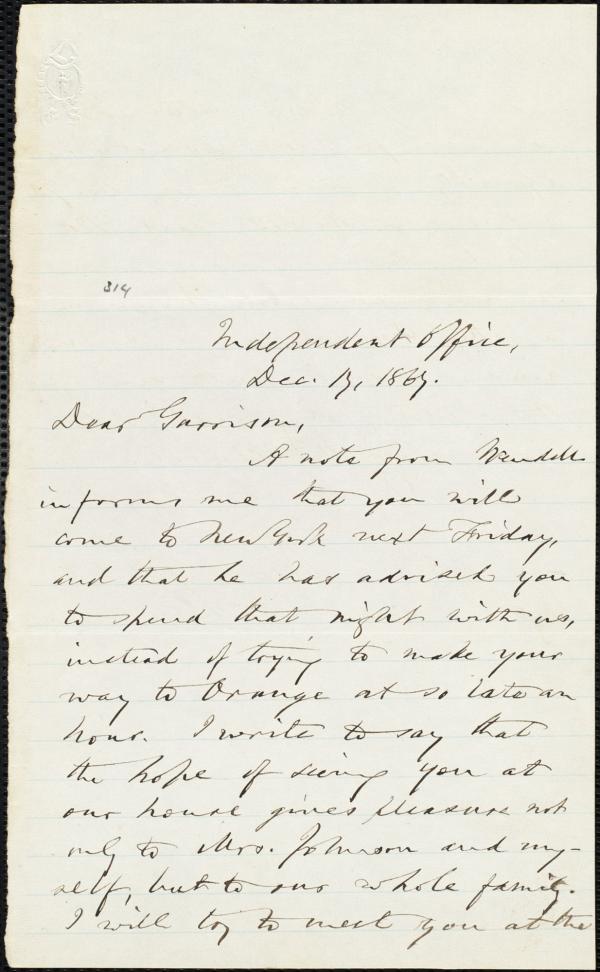 314
Independent Office,
Dec. 17, 1867.
Dear Garrison,
A note from Wendell
informs me that you will
come to New York next Friday,
and that he has advised you
to spend that night with us,
instead of trying to make your
way to Orange at so late an
hour. I write to say that
the hope of seeing you at
our house gives pleasure not
only to Mrs. Johnson and my-
self, but to our whole family.
I will try to meet you at the